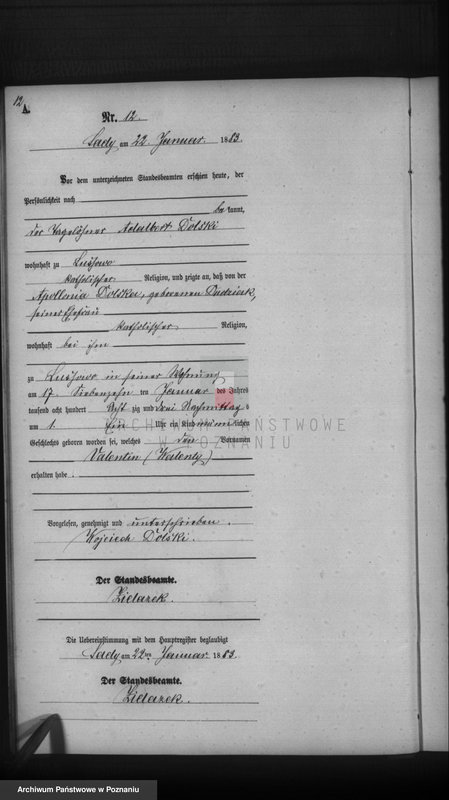 12
A.
Nr. 12.
Sady am 22. Januar 1883.
Vor dem unterzeichneten Standesbeamten erschien heute, der
Persönlichkeit nach
bekannt,
der Tagelöhner Adalbert Dolski
wohnhaft zu Lussowo
katholischer Religion, und zeigte an, daß von der
Apollonia Dolska, geborenen Dudziak,
seiner Ehefrau
katholischer Religion,
wohnhaft bei ihm
zu Lussowo in seiner Wohnung
am 17. Siebenzehn ten Januar des Jahres
tausend acht hundert Acht zig und drei Nachmittag s
um 1. Ein Uhr ein Kind männlichen
Geschlechts geboren worden sei, welches den Vornamen
Valentin (Walenty)
erhalten habe.
ARCHIWUM PAŃSTWOWE
W POZNANIU
Vorgelesen, genehmigt und unterschrieben.
Wojciech Dolski.
Der Standesbeamte.
Zielazek.
Die Uebereinstimmung mit dem Hauptregister beglaubigt
Sady am 22ten Januar 1883.
Der Standesbeamte.
Zielazek.
Archiwum Państwowe w Poznaniu